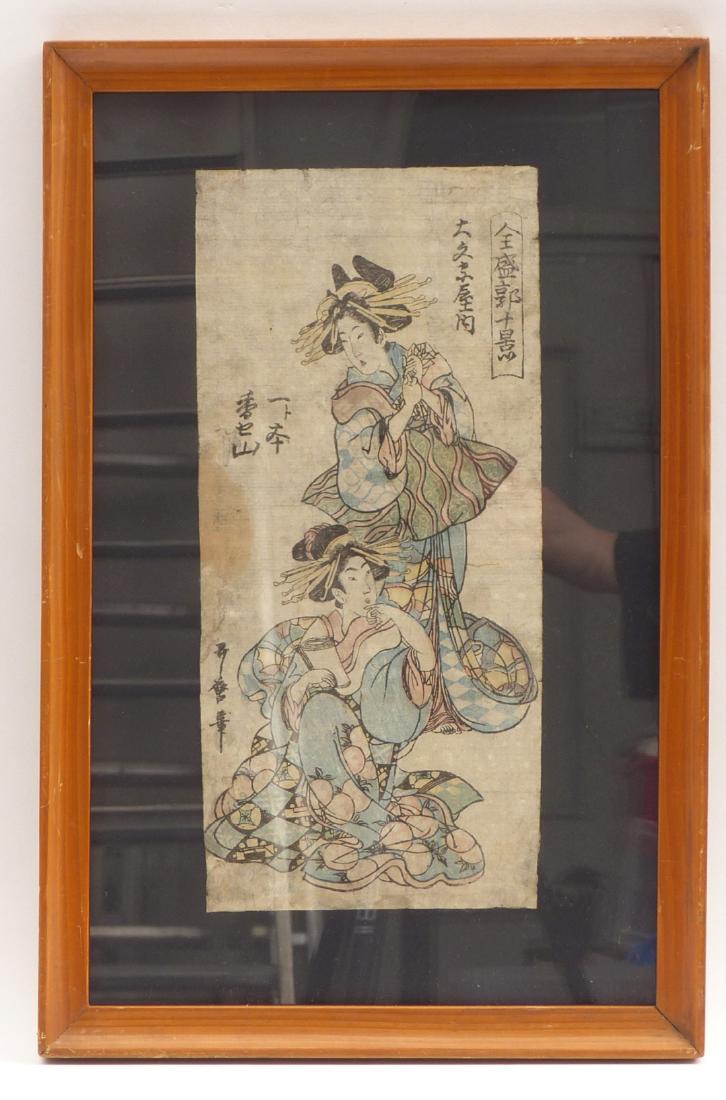 全盛郭十景
大文字屋内
一本
香世山
哥麿筆